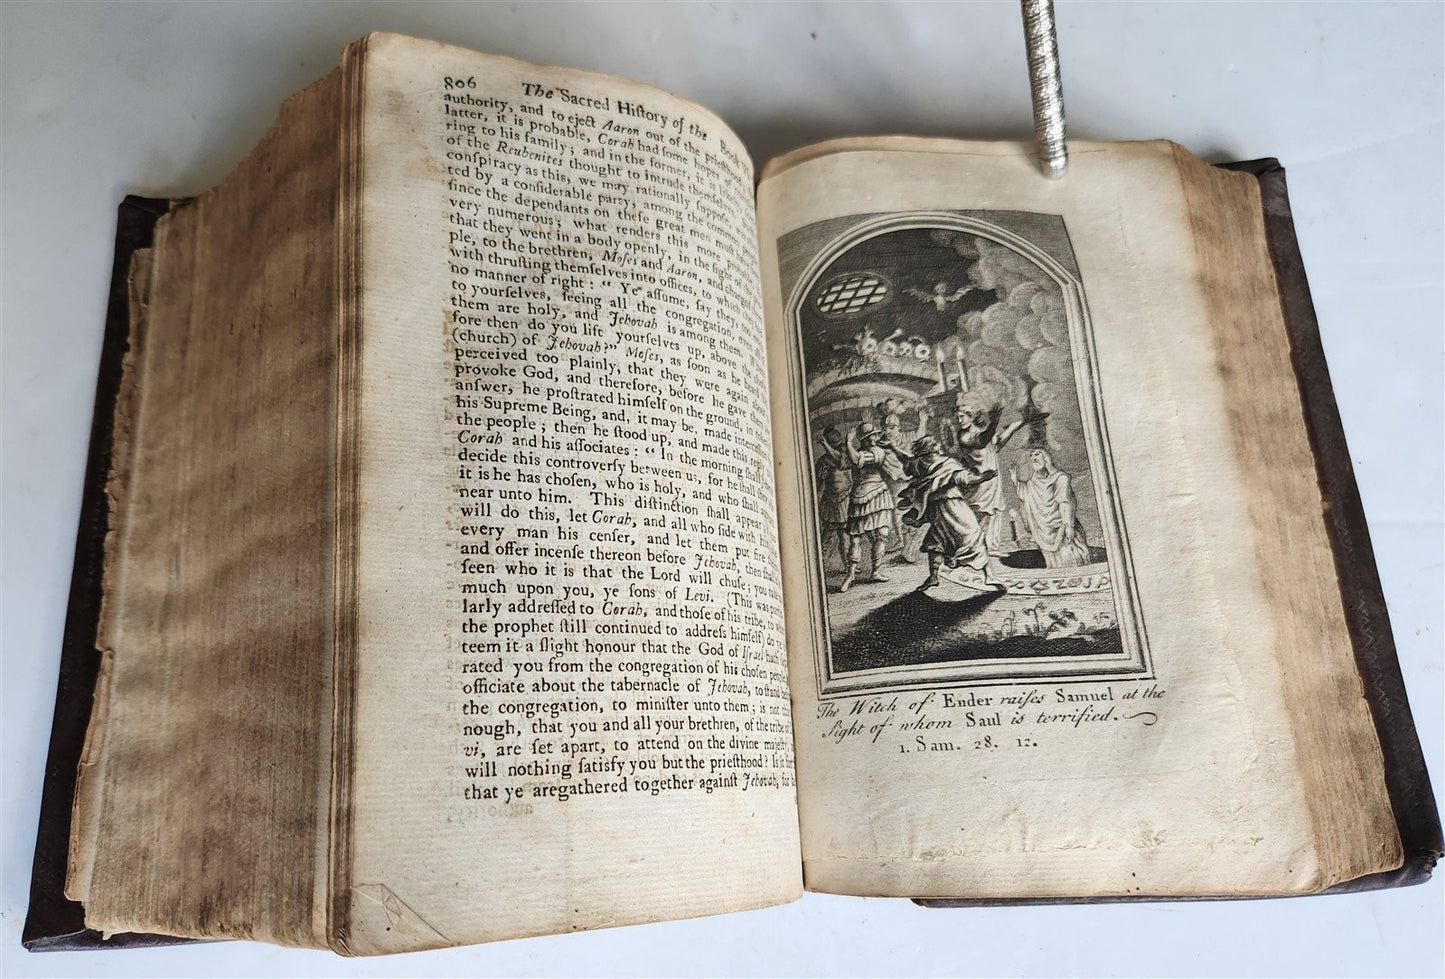 806 The Sacred Hiſtory of the Book
authority, and to eject Aaron out of the prieſthood
latter, it is probable, Corah had ſome hopes
ring to his family; and in the former, it is likely
of the Reubenites thought to intrude themſelves
conſpiracy as this, we may rationally ſuppoſe
ted by a conſiderable party, among the common
ſince the dependants on theſe great men muſt
very numerous; what renders this more probable
that they went in a body openly, in the ſight of the
ple, to the brethren, Moſes and Aaron, and charged
with thruſting themſelves into offices, to which they had
no manner of right: “ Ye aſſume, ſay they, too
to yourſelves, ſeeing all the congregation, even all
them are holy, and Jehovah is among them.
fore then do you lift yourſelves up, above the
(church) of Jehovah?” Moſes, as ſoon as he heard
perceived too plainly, that they were again about
provoke God, and therefore, before he gave them
anſwer, he proſtrated himſelf on the ground,
his Supreme Being, and, it may be, made interceſſion
the people; then he ſtood up, and made this reply
Corah and his aſſociates: “ In the morning ſhall
decide this controverſy between us, for he ſhall
it is he has choſen, who is holy, and who ſhall
near unto him. This diſtinction ſhall appear
will do this, let Corah, and all who ſide with him
every man his cenſer, and let them put fire
and offer incenſe thereon before Jehovah, then ſhall
ſeen who it is that the Lord will chuſe; you take
much upon you, ye ſons of Levi. (This was
larly addreſſed to Corah, and thoſe of his tribe, to
the prophet ſtill continued to addreſs himſelf) do ye
teem it a ſlight honour that the God of Iſrael hath
rated you from the congregation of his choſen people,
officiate about the tabernacle of Jehovah, to ſtand before
the congregation, to miniſter unto them; is not
nough, that you and all your brethren, of the tribe of
vi, are ſet apart, to attend on the divine majeſty,
will nothing ſatisfy you but the prieſthood? Is it
that ye aregathered together againſt Jehovah, for
The Witch of Ender raiſes Samuel at the
Sight of whom Saul is terrified.
1. Sam. 28. 12.